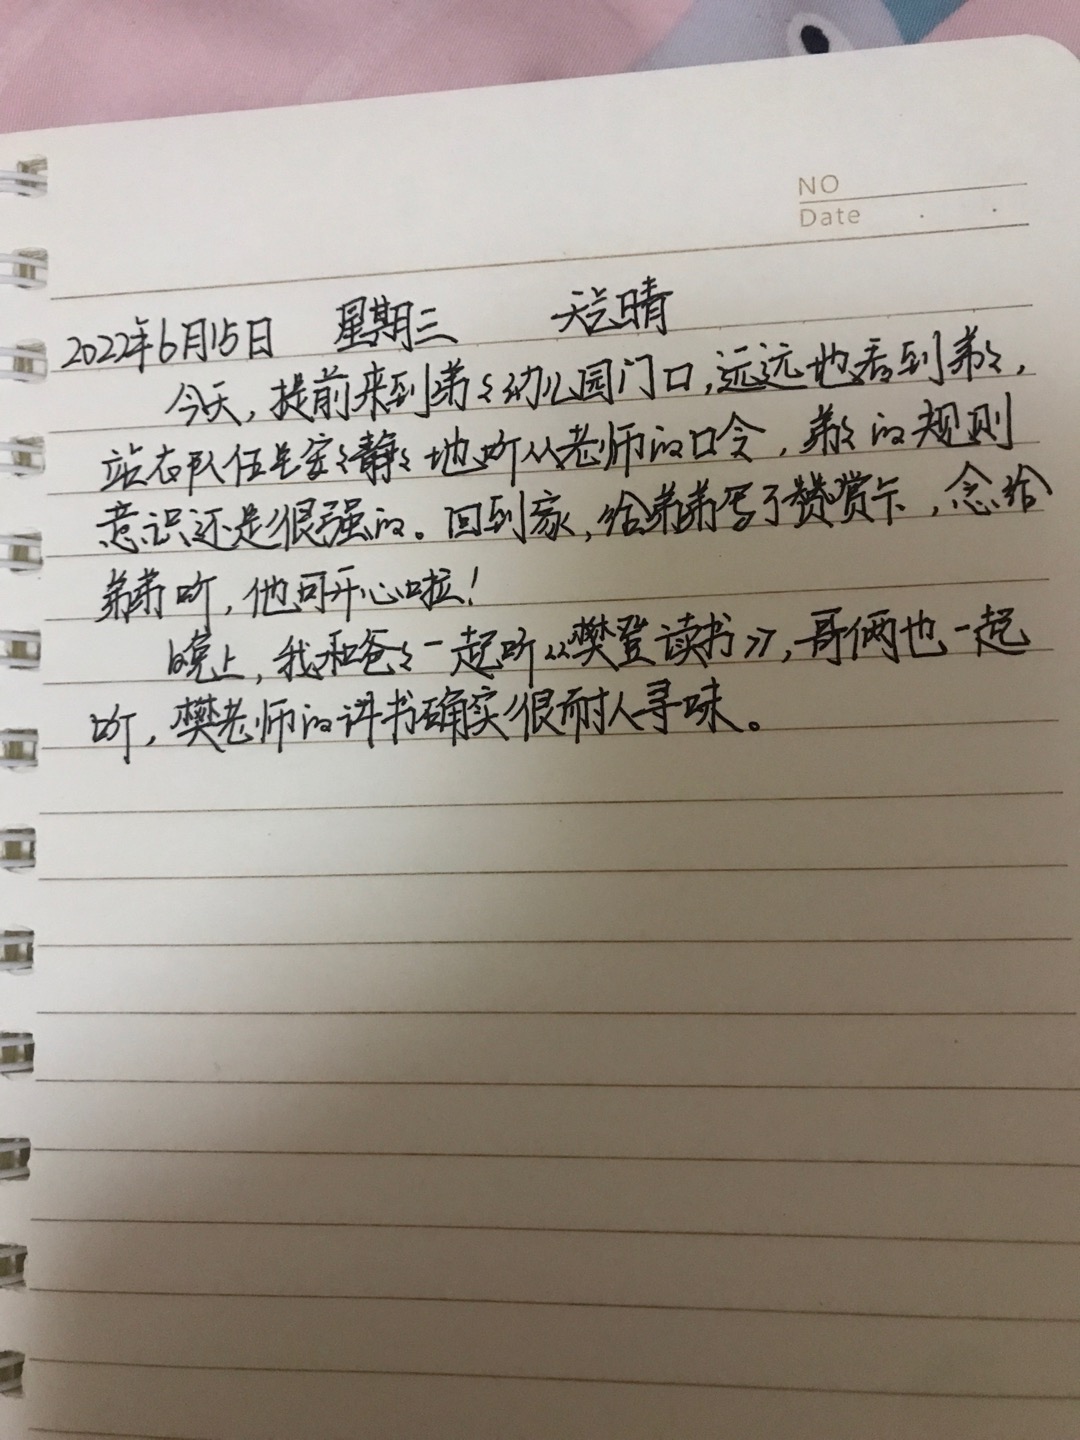 NO
Date
2022年6月15日 星期三 天气晴
今天，提前来到弟弟幼儿园门口，远远地看到弟弟，
站在队伍里安安静静地听从老师的口令，弟弟的规则
意识还是很强的。回到家，给弟弟写了赞赏卡，念给
弟弟听，他可开心啦！
晚上，我和爸爸一起听《樊登读书》，哥俩也一起
听，樊老师的讲书确实很耐人寻味。